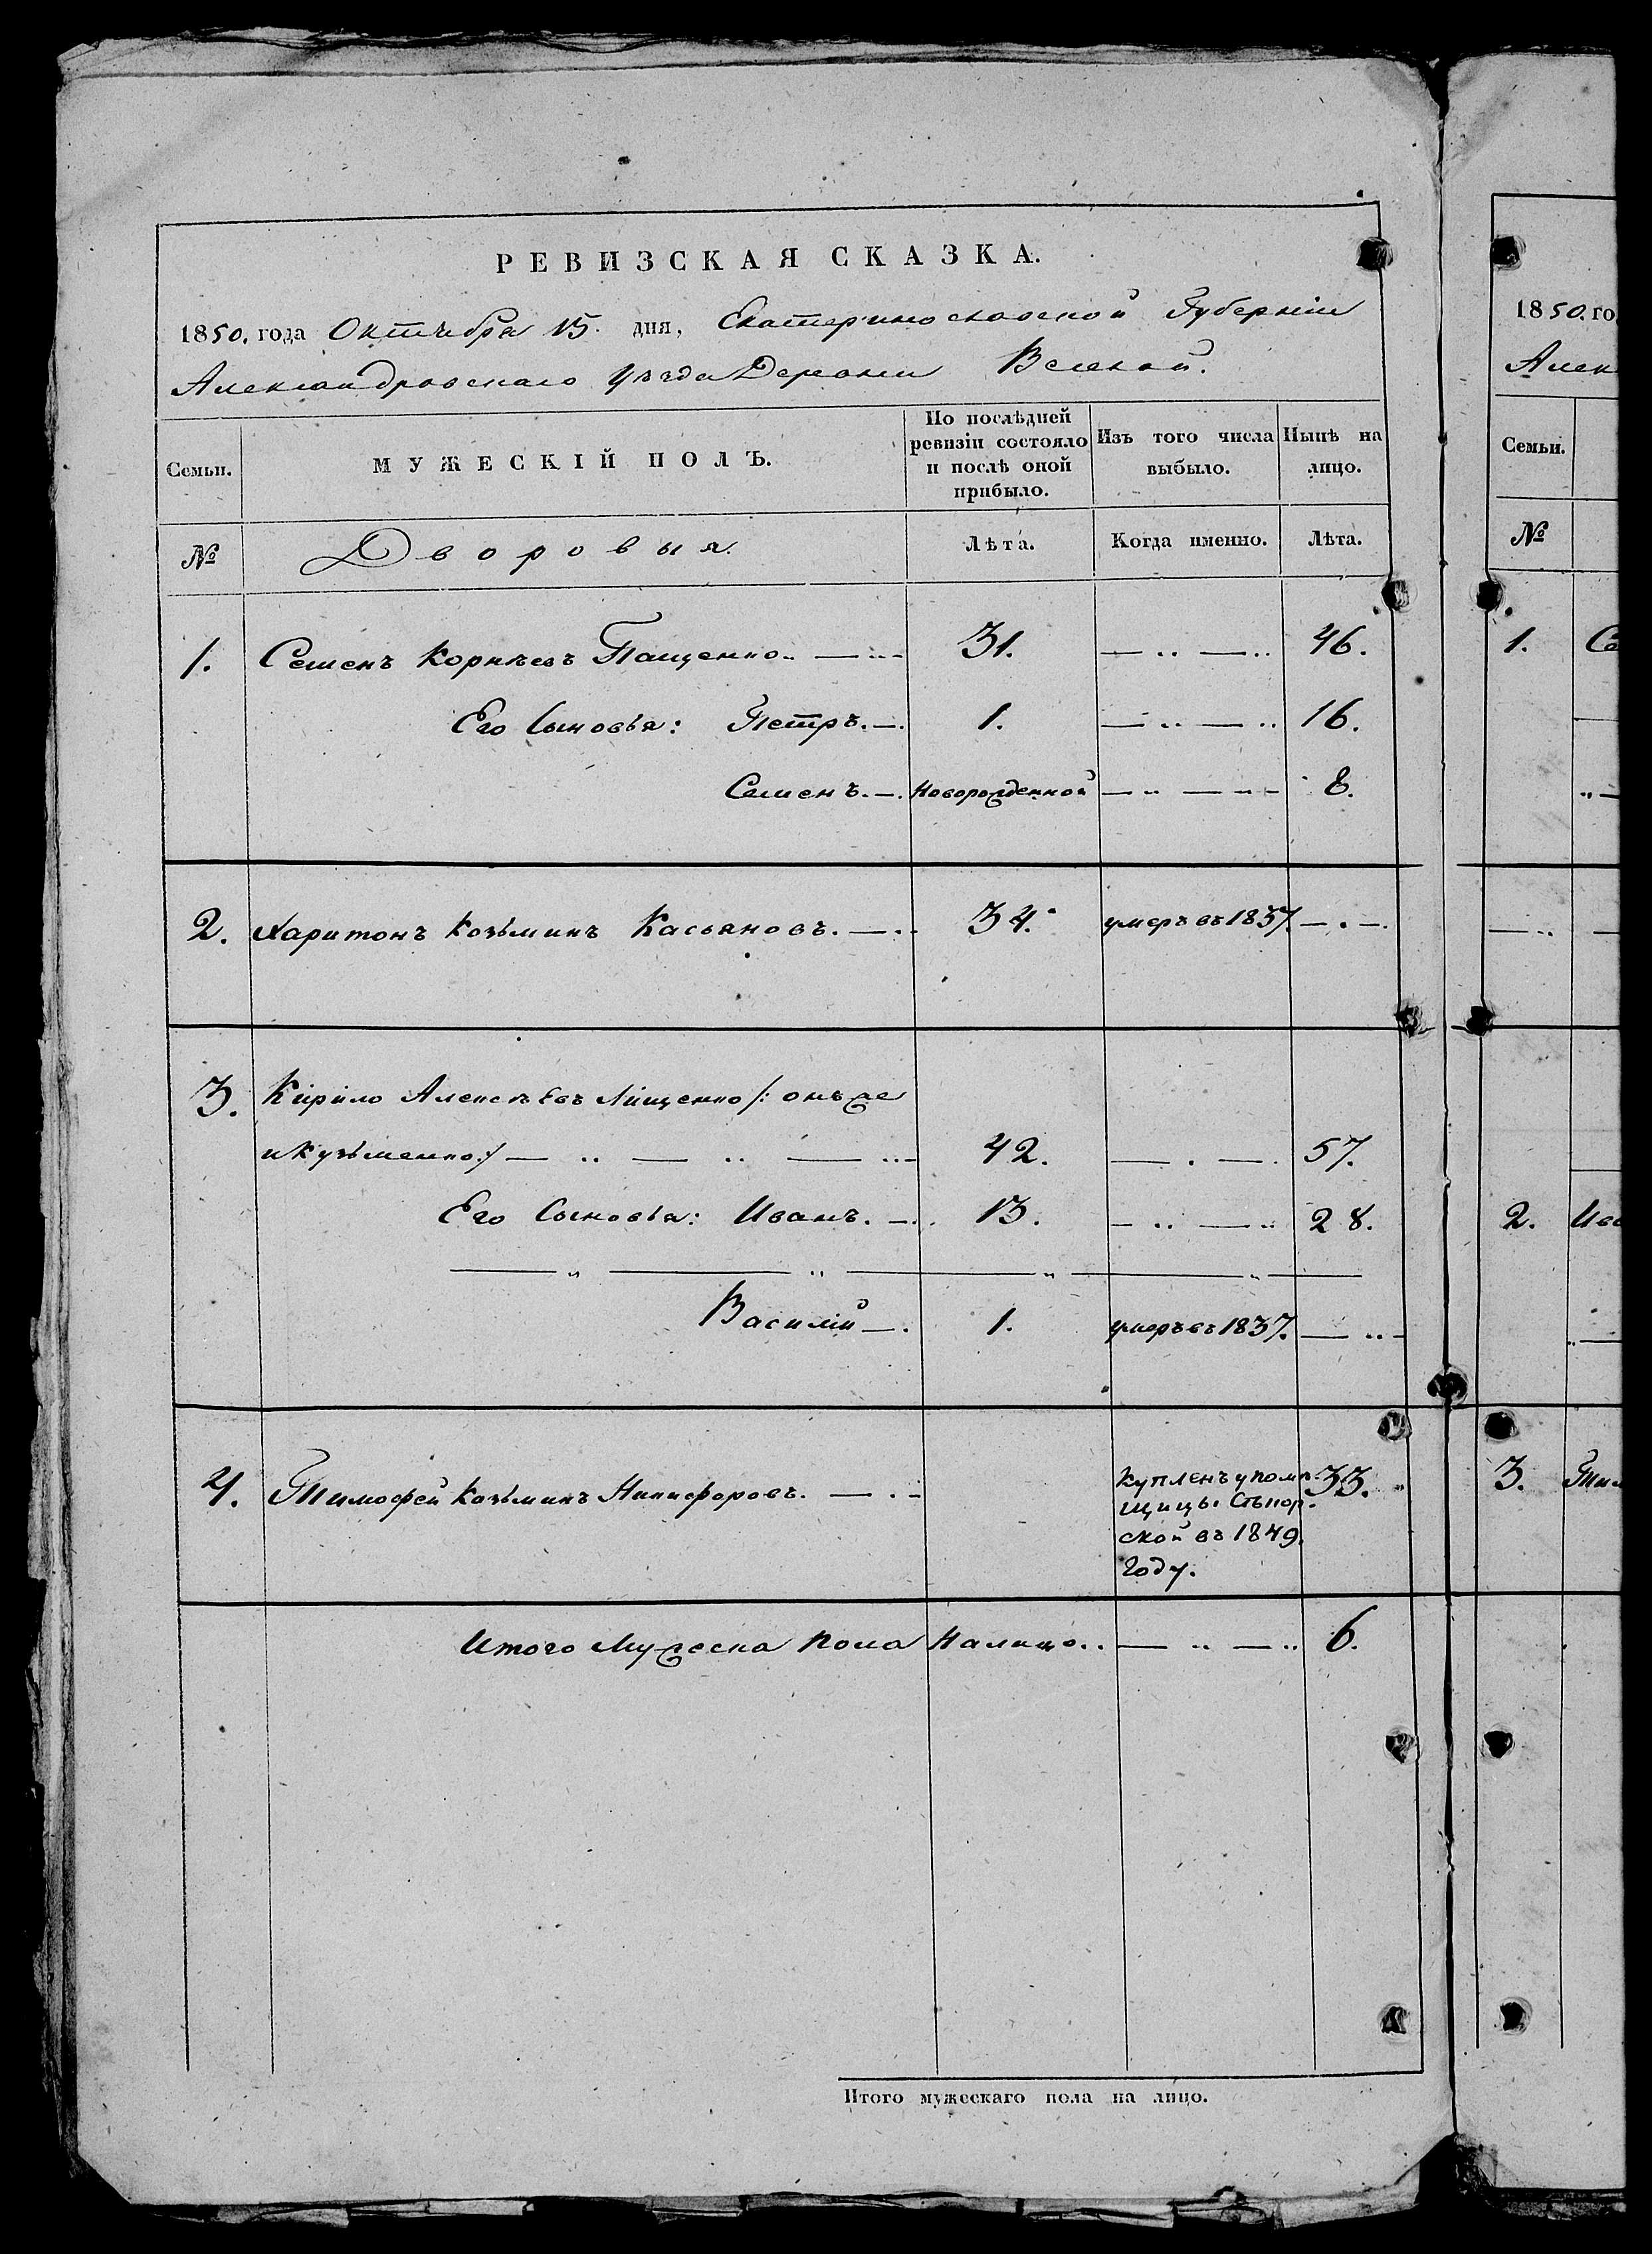 РЕВИЗСКАЯ СКАЗКА.
1850. года Октября 15. дня, Екатеринославской Губерніи
Александровскаго Уѣзда Деревни
Семьи. МУЖЕСКІЙ ПОЛЪ. По послѣдней ревизіи состояло и послѣ оной прибыло. Изъ того числа выбыло. Нынѣ на лицо.
№ Дворовыя. Лѣта. Когда именно. Лѣта.
1. Семенъ Корнѣевъ Пащенко 31. 46.
Его Сыновья: Петръ. 1. 16.
Семенъ. Новорожденной 8.
2. Харитонъ Козьминъ Касьяновъ. 34. умеръ въ 1837.
3. Кирило Алексѣевъ Лищенко /: онъ же
и Кузьменко :/ 42. 57.
Его Сыновья: Иванъ. 13. 28.
Василій 1. умеръ въ 1837.
4. Тимофей Козьминъ Никифоровъ. 33.
Купленъ у помѣ-
щицы
ской въ 1849.
году.
Итого Мужеска пола Налицо.. 6.
Итого мужескаго пола на лицо.
1850. го
Алек
Семьи.
№
1. Се
2. Ива
3. Тим